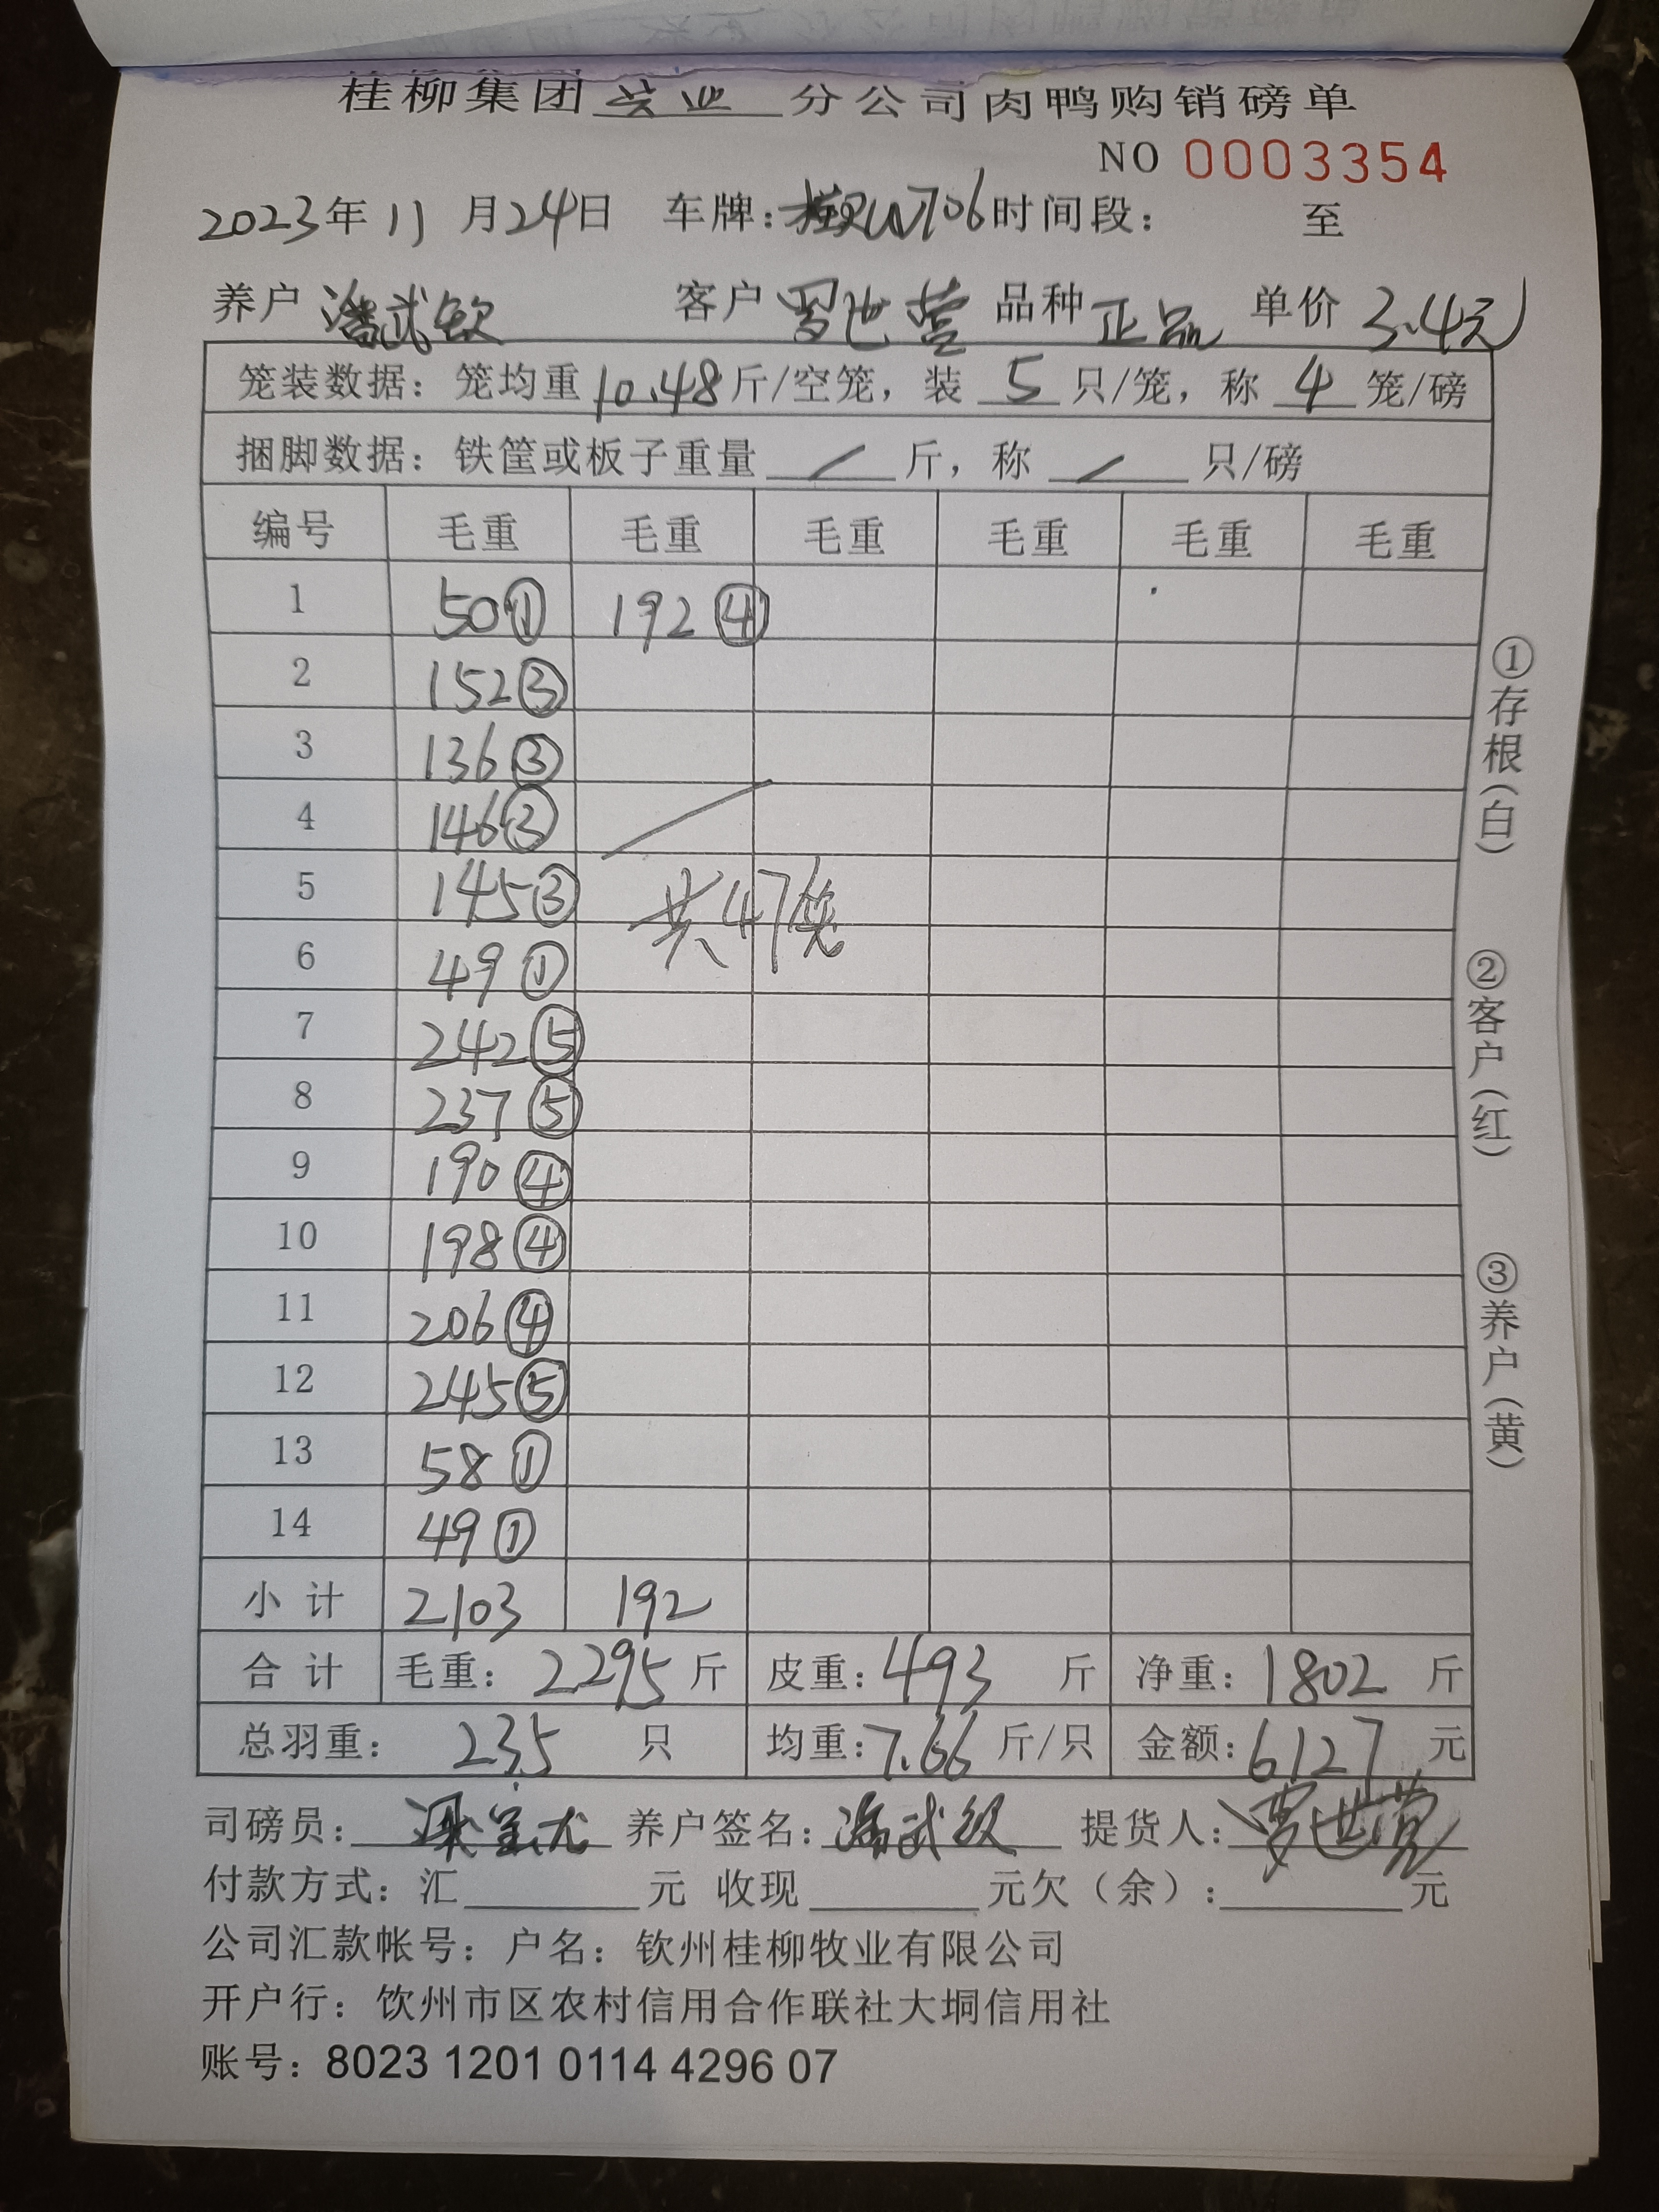 桂柳集团 兴业 分公司肉鸭购销磅单
NO 0003354
2023年11月24日 车牌: 706 时间段: 至
养户 潘武钦 客户 罗世营 品种 正品 单价 3.4元
笼装数据: 笼均重 10.48 斤/空笼, 装 5 只/笼, 称 4 笼/磅
捆脚数据: 铁筐或板子重量 / 斤, 称 / 只/磅
编号 毛重 毛重 毛重 毛重 毛重 毛重
1 50① 192④
2 152③
3 136③
4 146③
5 145③
共47笼
6 49①
7 242⑤
8 237⑤
9 190④
10 198④
11 206④
12 245⑤
13 58①
14 49①
小计 2103 192
合计 毛重: 2295 斤 皮重: 493 斤 净重: 1802 斤
总羽重: 235 只 均重: 7.66 斤/只 金额: 6127 元
司磅员: 养户签名: 潘武钦 提货人: 罗世营
付款方式: 汇 元 收现 元欠(余): 元
公司汇款帐号: 户名: 钦州桂柳牧业有限公司
开户行: 钦州市区农村信用合作联社大垌信用社
账号: 8023 1201 0114 4296 07
①存根(白)
②客户(红)
③养户(黄)